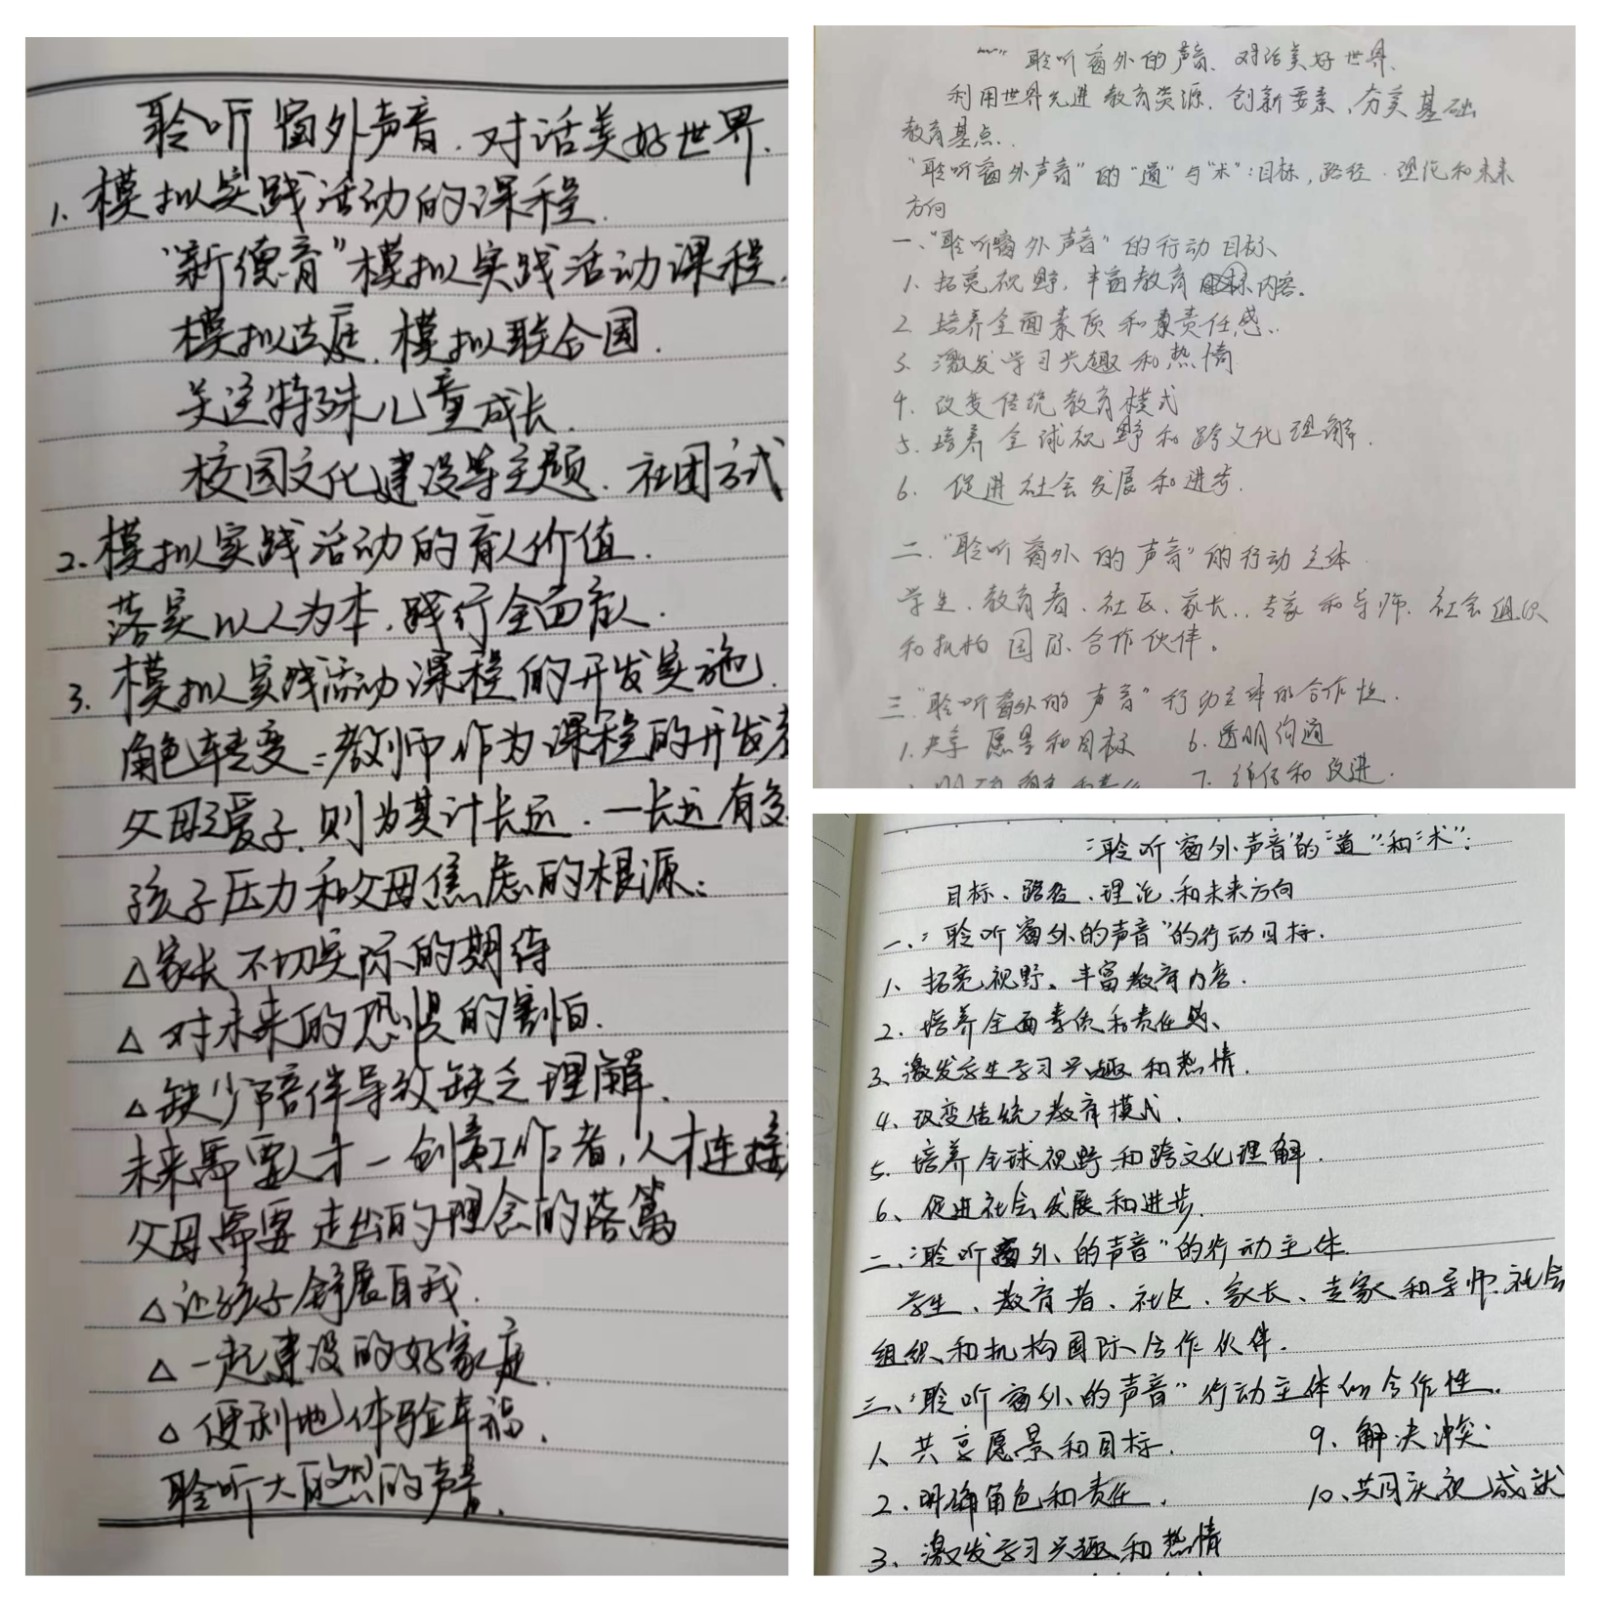 聆听窗外声音.对话美好世界.
1.模拟实践活动的课程.
"新德育"模拟实践活动课程.
模拟法庭.模拟联合国.
关注特殊儿童成长.
校园文化建设等主题.社团方式
2.模拟实践活动的育人价值.
落实以人为本.践行全面育人.
3.模拟实践活动课程的开发实施.
角色转变:教师作为课程的开发
父母之爱子.则为其计长远.一长远有多
孩子压力和父母焦虑的根源:
△家长不切实际的期待
△对未来的恐惧的害怕.
△缺少陪伴导致缺乏理解.
未来需要人才一创意工作者,人才连接
父母需要走出的理念的
△让孩子舒展自我.
△一起建设的好家庭.
△便利地体验幸福.
聆听大自然的声音.
聆听窗外的声音、对话美好世界.
利用世界先进教育资源.创新要素、夯实基础
教育基点.
"聆听窗外声音"的"道"与"术":目标,路径.理论和未来
方向
一、"聆听窗外声音"的行动目标、
1.拓宽视野,丰富教育内容.
2.培养全面素质和责任感.
3.激发学习兴趣和热情
4.改变传统教育模式
5.培养全球视野和跨文化理解.
6.促进社会发展和进步.
二."聆听窗外的声音"的行动主体
学生.教育者.社区.家长..专家和导师.社会组织
和机构国际合作伙伴。
三"聆听窗外的声音"行动主体的合作性.
1.共享愿景和目标 6.透明沟通
7.评估和改进.
"聆听窗外声音的"道"和"术":
目标、路径、理论、和未来方向
一、"聆听窗外的声音"的行动目标.
1、拓宽视野。丰富教育内容.
2.培养全面素质和责任感、
3、激发学生学习兴趣和热情.
4、改变传统教育模式.
5.培养全球视野和跨文化理解.
6、促进社会发展和进步.
二、"聆听窗外、的声音"的行动主体.
学生、教育者、社区、家长、专家和导师.社会
组织和机构国际合作伙伴.
三、"聆听窗外、的声音"行动主体的合作性.
1、共享愿景和目标. 9、解决冲突
2.明确角色和责任. 10、共同庆祝成就
3、激发学习兴趣和热情